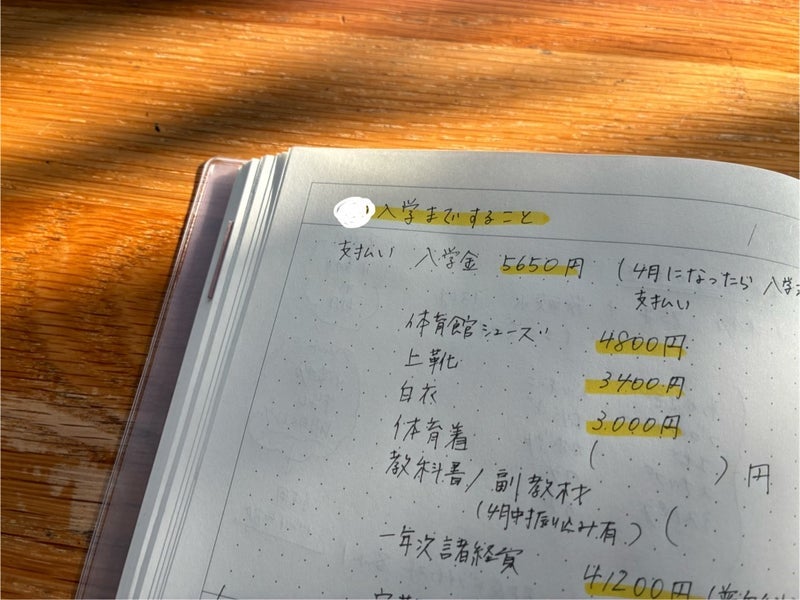 入学まですること
支払い 入学金 5650円 (4月になったら 入学
支払い
体育館シューズ 4800円
上靴 3400円
白衣 3.000円
体育着 ( )円
教科書/副教材 (
(4月中振り込み有)
一年次諸経費 41200円 (